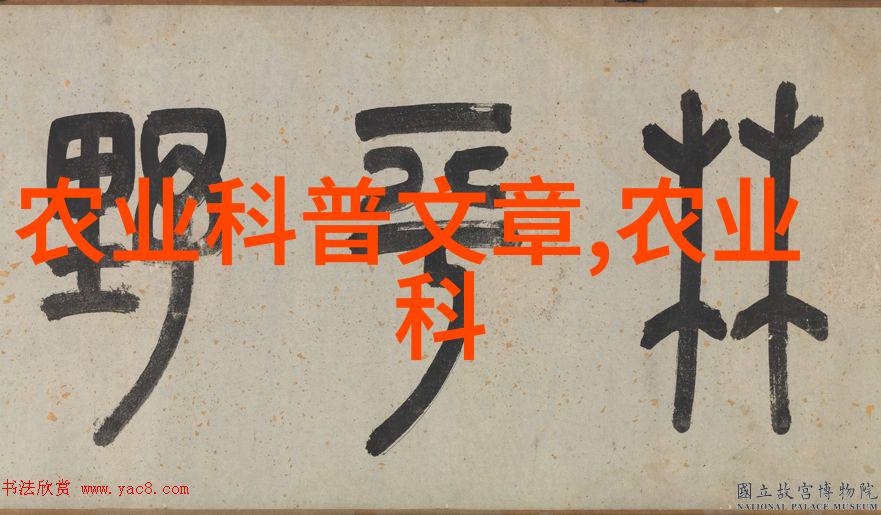 林平野
农业科普文章,农业
科
书法欣赏 www.yac8.com
國立故宮博物院
NATIONAL PALACE MUSEUM